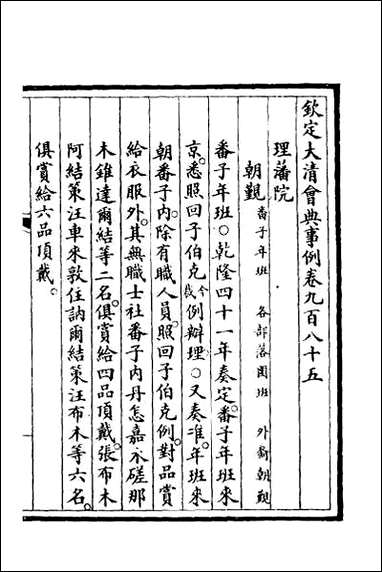 欽定大清會典事例卷九百八十五
理藩院
朝覲 番子年班 各部落圍班 外裔朝覲
番子年班○乾隆四十一年奏定番子年班來
京悉照回子伯克今裁例辦理○又奏准年班來
朝番子內除有職人員照回子伯克例對品賞
給衣服外其無職土社番子內丹怎嘉木磋那
木錐達爾結等二名俱賞給四品頂戴張布木
阿結策汪車來敦住訥爾結策汪布木等六名
俱賞給六品頂戴